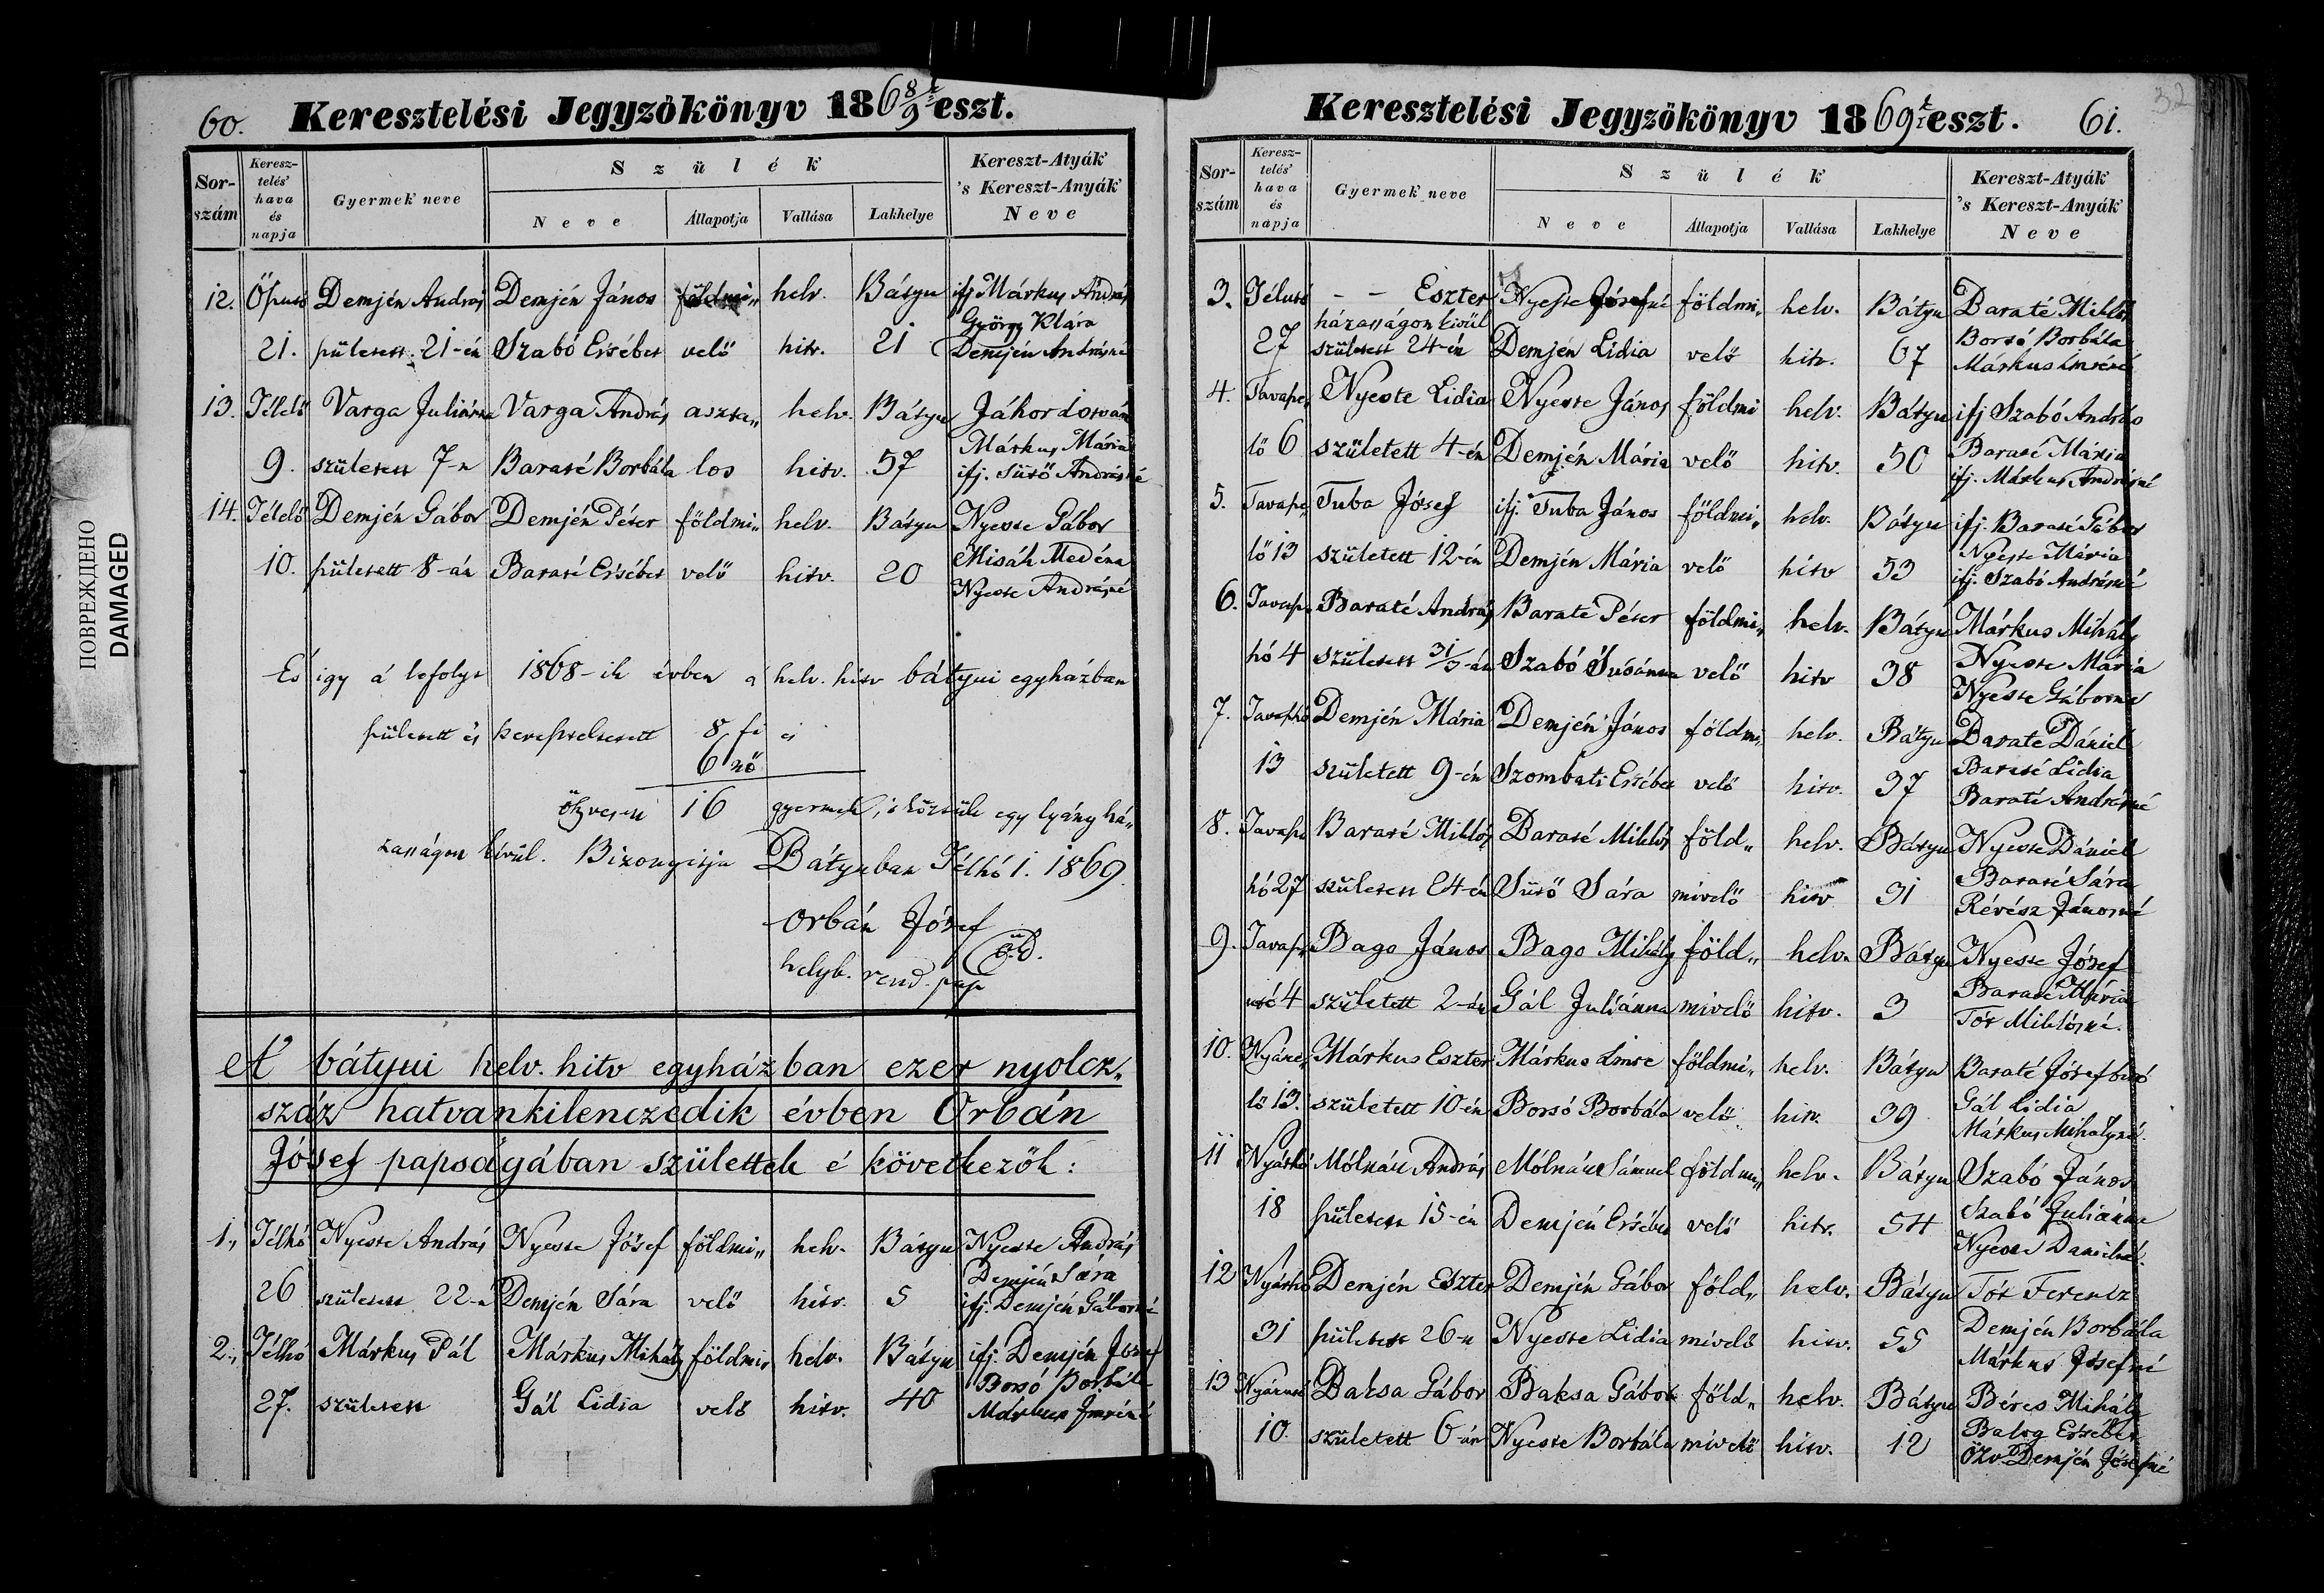 ПОВРЕЖДЕНО
DAMAGED
60. Keresztelési Jegyzökönyv 186 8/9 k eszt.
Sorszám Keresztelés' hava és napja Gyermek neve Szülék Neve Állapotja Vallása Lakhelye Kereszt-Atyák 's Kereszt-Anyák Neve
12. Őputó Demjén András Demjén János földmi„ helv. Bátyu ifj Márkus András
György Klára
21. született 21-én Szabó Ersébet velő hitv. 21 Demjén Andrásné
13. Télelő Varga Juliánna Varga András aszta„ helv. Bátyu Jáhor István
Márkus Mária
9. született 7-n Baraté Borbála los hitv. 57 ifj. Sütő Andrásné
14. Télelő Demjén Gábor Demjén Péter földmi„ helv. Bátyu Nyeste Gábor
Misák Medéna
10. született 8-án Baraté Ersébet velő hitv. 20 Nyeste Andrásné
És igy á lefolyt 1868-ik évben á helv. hitv bátyui egyházban
született és kereszteltetett 8 fi és
6 nő
öszvesen 16 gyermek, s közzülle egy lyány há„
zasságon kívül. Bizonyitja Bátyuban Télhó 1. 1869.
Orbán Jósef
helyb. rend. pap
A' bátyui helv. hitv egyházban ezer nyolcz„
száz hatvankilenczedik évben Orbán
Jósef papságában születtek é következők:
1., Télhó Nyeste András Nyeste Jósef földmi„ helv. Bátyu Nyeste András
Demjén Sára
26 született 22-n Demjén Sára velő hitv. 5 ifj. Demjén Gáborné
2., Télhó Márkus Pál Márkus Mihály földmi„ helv. Bátyu ifj. Demjén Jósef
Borsó Borbála
27. született Gál Lidia velő hitv. 40 Márkus Imréné
Keresztelési Jegyzökönyv 1869 k eszt. 61.
32
Sorszám Keresztelés' hava és napja Gyermek neve Szülék Neve Állapotja Vallása Lakhelye Kereszt-Atyák 's Kereszt-Anyák Neve
3. Télutó – – Eszter Nyeste Jósefné földmi„ helv. Bátyu Baraté Miklós
házasságon kívül Borsó Borbála
27 született 24-én Demjén Lidia velő hitv. 67 Márkus Imréné
4. Tavasze„ Nyeste Lidia Nyeste János földmi helv. Bátyu ifj Szabó András
Baraté Mária
lő 6 született 4-én Demjén Mária velő hitv. 50 ifj. Márkus Andrásné
5. Tavasze„ Tuba Jósef ifj. Tuba János földmi„ helv. Bátyu ifj. Baraté Gábor
Nyeste Mária
lő 13 született 12-én Demjén Mária velő hitv 53 ifj. Szabó Andrásné
6. Tavasz„ Baraté András Baraté Péter földmi„ helv. Bátyu Márkus Mihály
Nyeste Mária
hó 4 született 31/3-án Szabó Susánna velő hitv 38 Nyeste Gáborné
7. Tavaszhó Demjén Mária Demjén János földmi„ helv. Bátyu Baraté Dániel
Baraté Lidia
13 született 9-én Szombati Ersébet velő hitv. 37 Baraté Andrásné
8. Tavasz Baraté Miklós Baraté Miklós föld„ helv. Bátyu Nyeste Dániel
Baraté Sára
hó 27 született 24-én Sütő Sára mivelő hitv 31 Révész Jánosné
9. Tavasz„ Bago János Bago Mihály föld„ helv. Bátyu Nyeste Jósef
Baraté Mária
utó 4 született 2-án Gál Juliánna mivelő hitv. 3 Tót Miklósné.
10. Nyáre„ Márkus Eszter Márkus Imre földmi„ helv. Bátyu Baraté Jósef biró
Gál Lidia
lő 13. született 10-én Borsó Borbála velő hitv. 39 Márkus Mihályné.
11 Nyárhó Mólnár András Mólnár Sámuel földmi„ helv. Bátyu Szabó János
Szabó Juliánna
18 született 15-én Demjén Ersébet velő hitv. 54 Nyeste Dánielné.
12 Nyárhó Demjén Eszter Demjén Gábor föld„ helv. Bátyu Tót Ferencz
Demjén Borbála
31 született 26-n Nyeste Lidia mívelő hitv. 55 Márkus Jósefné
13 Nyárutó Baksa Gábor Baksa Gábor föld„ helv. Bátyu Béres Mihály
Balog Ersébet
10. született 6-án Nyeste Borbála mivelő hitv. 12 Özv Demjén Jósefné